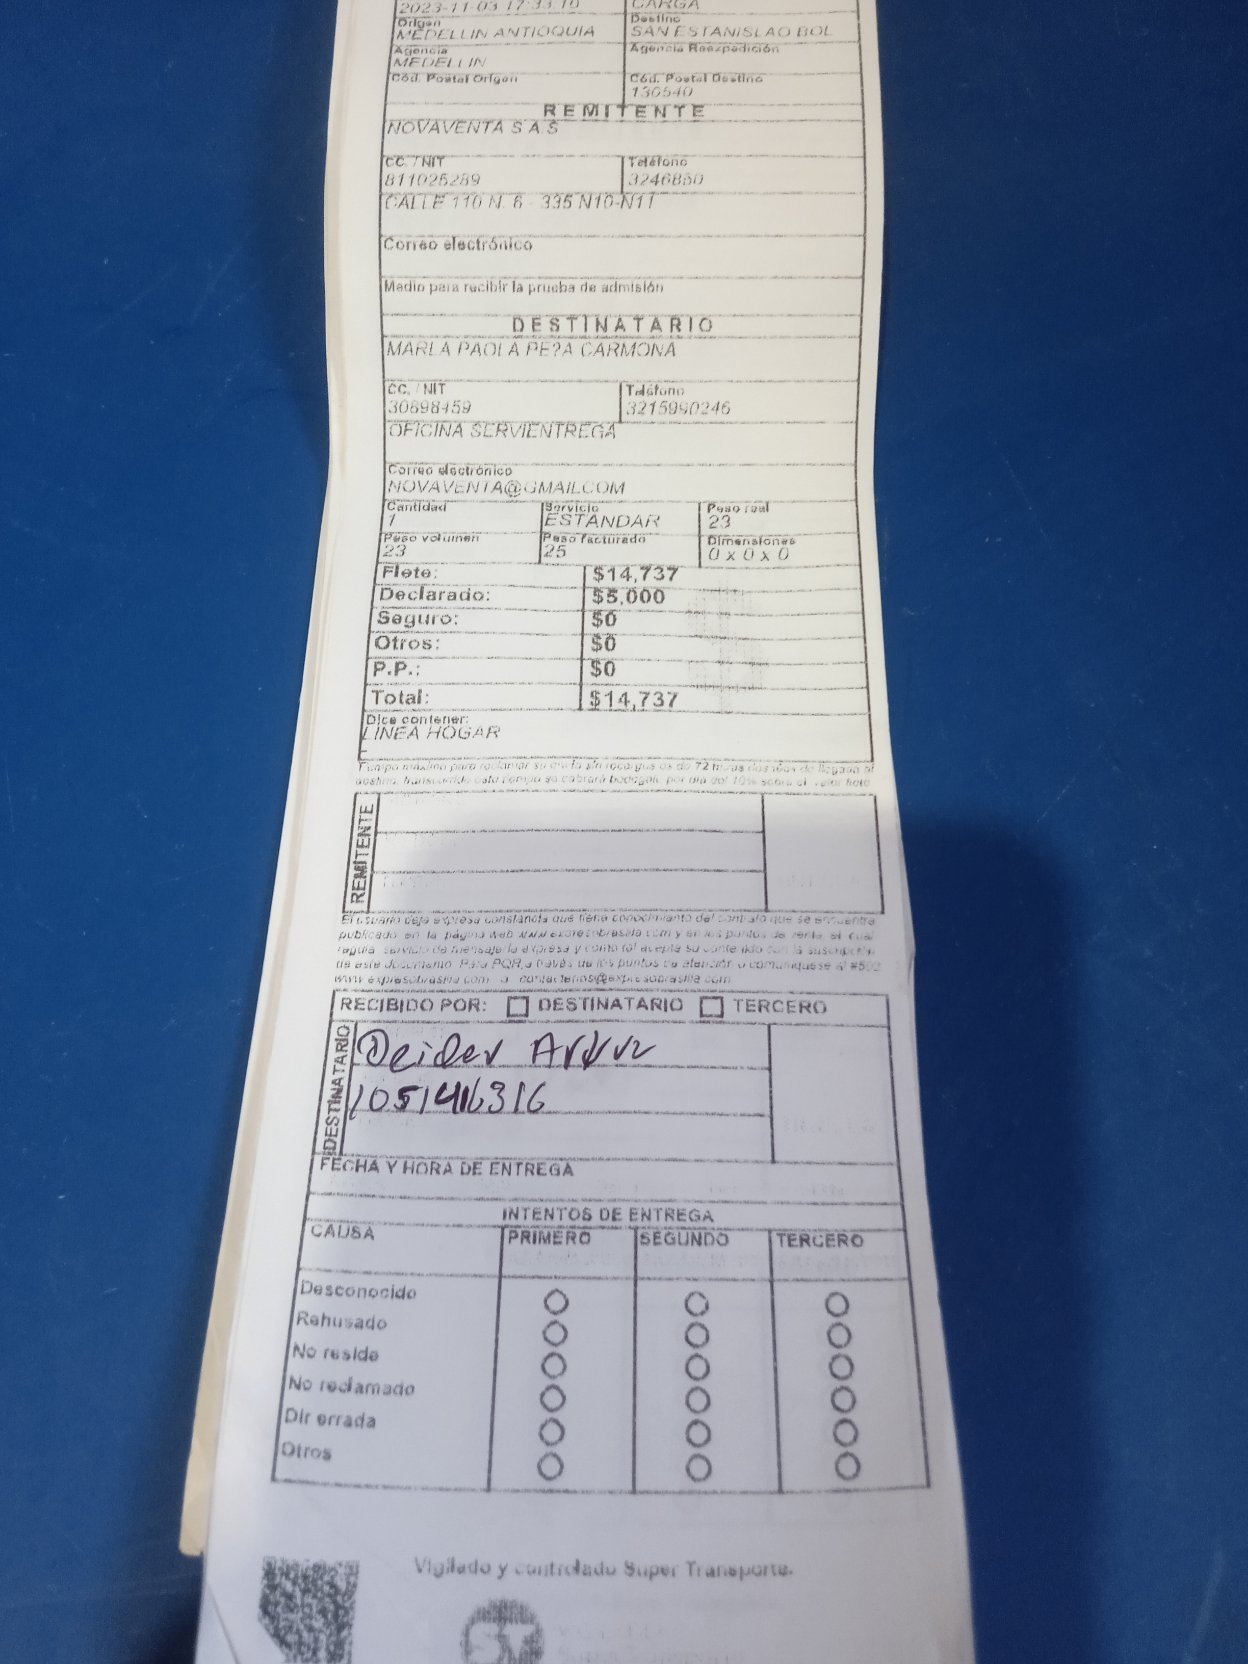 2023-11-03 17:33:10 CARGA
Origen Destino
MEDELLIN ANTIOQUIA SAN ESTANISLAO BOL
Agencia Agencia Reexpedición
MEDELLIN
Cód. Postal Origen Cód. Postal Destino
130540
REMITENTE
NOVAVENTA S A S
CC. / NIT Teléfono
811025289 3246880
CALLE 110 N. 6 - 335 N10-N11
Correo electrónico
Medio para recibir la prueba de admisión
DESTINATARIO
MARLA PAOLA PE?A CARMONA
CC. / NIT Teléfono
30898459 3215990246
OFICINA SERVIENTREGA
Correo electrónico
NOVAVENTA@GMAILCOM
Cantidad Servicio Peso real
1 ESTANDAR 23
Peso volumen Peso facturado Dimensiones
23 25 0 x 0 x 0
Flete: $14,737
Declarado: $5,000
Seguro: $0
Otros: $0
P.P.: $0
Total: $14,737
Dice contener:
LINEA HOGAR
Tiempo máximo para reclamar su sin recargos es de 72 horas después de llegada al
destino, transcurrido este tiempo se cobrará bodegaje por día del 10% sobre el valor flete
REMITENTE
El usuario deja expresa constancia que tiene conocimiento del contrato que se encuentra
publicado en la página web www.expresobrasilia.com y en los puntos de venta, el cual
regula servicio de mensajería expresa y como tal acepta su contenido con la suscripción
de este documento. Para PQR, a través de los puntos de atención o comuníquese al #502
www.expresobrasilia.com o contactenos@expresobrasilia.com
RECIBIDO POR: DESTINATARIO TERCERO
DESTINATARIO
Deider
1051416316
FECHA Y HORA DE ENTREGA
INTENTOS DE ENTREGA
CAUSA PRIMERO SEGUNDO TERCERO
Desconocido
Rehusado
No reside
No reclamado
Dir errada
Otros
Vigilado y controlado Super Transporte.